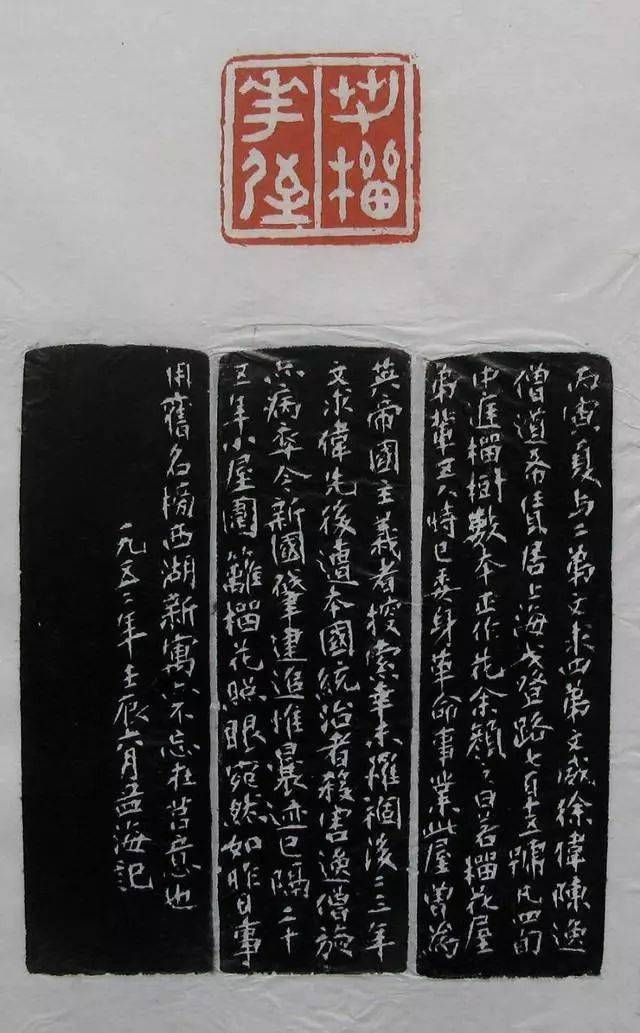 若榴
花屋
丙寅夏与二弟文求四弟文威徐偉陳逸
僧道希賃居上海戈登路七百十五號凡四間
中庭榴樹數本正作花余顏之曰若榴花屋
弟輩五人時已委身革命事業此屋曾為
英帝國主義者搜索幸未罹禍後二三年
文求偉先後遭本國統治者殺害逸僧旋
亦病卒今新國肇建追惟曩迹已隔二十
五年小屋團籬榴花照眼宛然如昨日事
用舊名榜西湖新寓亦不忘在莒意也
一九五二年壬辰六月孟海記